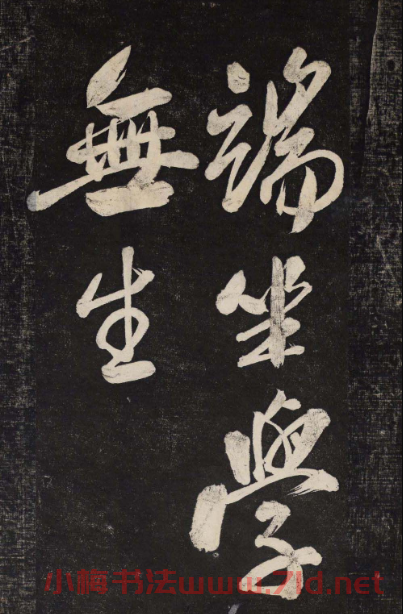 端坐學
無生
小梅书法www.7ld.net